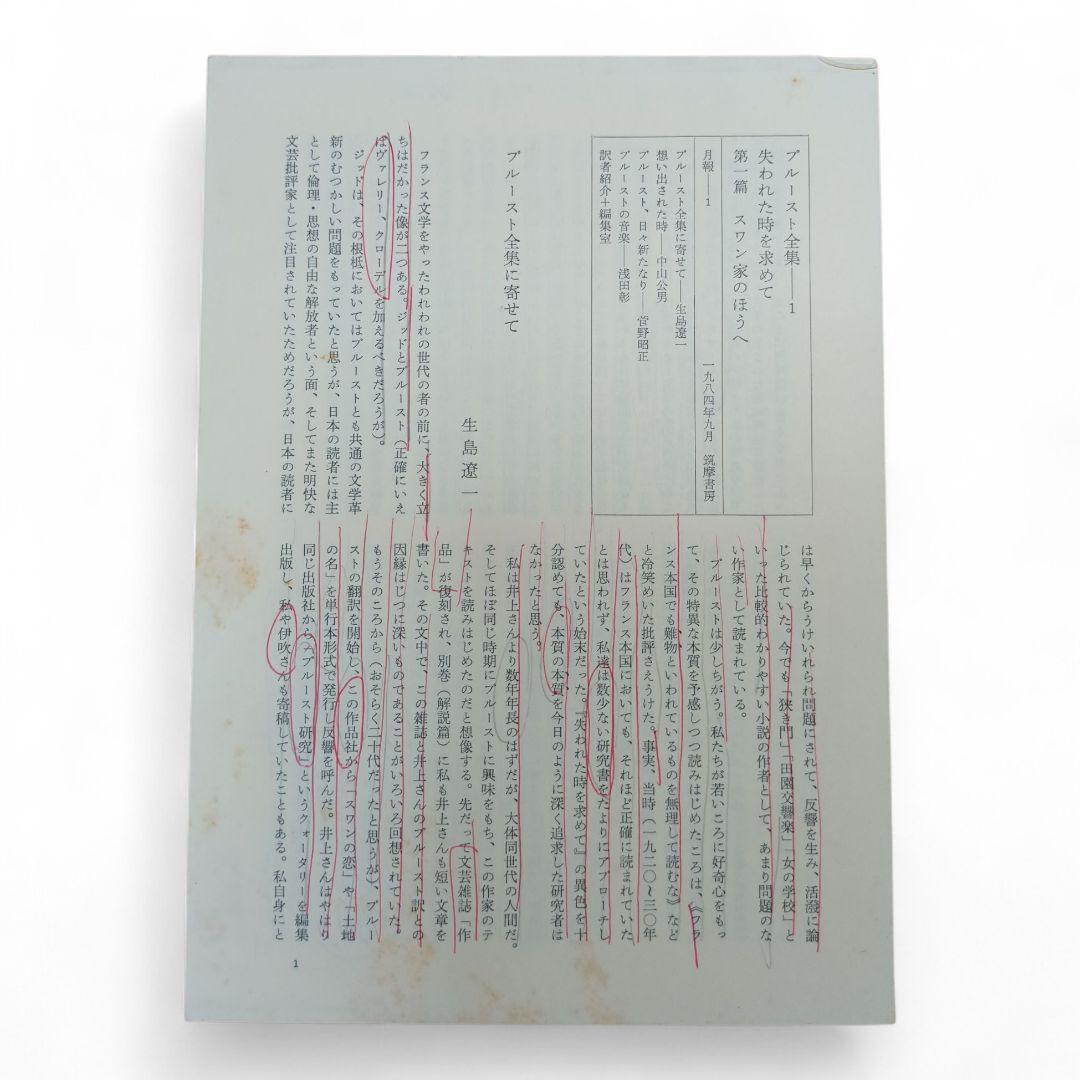 プルースト全集――1
失われた時を求めて
第一篇　スワン家のほうへ
月報――1　一九八四年九月　筑摩書房
プルースト全集に寄せて――生島遼一
想い出された時――中山公男
プルースト、日々新たなり――菅野昭正
プルーストの音楽――浅田彰
訳者紹介+編集室
プルースト全集に寄せて
生島遼一
フランス文学をやったわれわれの世代の者の前に、大きく立
ちはだかった像が二つある。ジッドとプルースト（正確にいえ
ばヴァレリー、クローデルを加えるべきだろうが）。
ジッドは、その根柢においてはプルーストとも共通の文学革
新のむつかしい問題をもっていたと思うが、日本の読者には主
として倫理・思想の自由な解放者という面、そしてまた明快な
文芸批評家として注目されていたためだろうが、日本の読者に
は早くからうけいれられ問題にされて、反響を生み、活潑に論
じられていた。今でも「狭き門」「田園交響楽」「女の学校」と
いった比較的わかりやすい小説の作者として、あまり問題のな
い作家として読まれている。
プルーストは少しちがう。私たちが若いころに好奇心をもっ
て、その特異な本質を予感しつつ読みはじめたころは、《フラ
ンス本国でも難物といわれているものを無理して読むな》など
と冷笑めいた批評さえうけた。事実、当時（一九二〇〜三〇年
代）はフランス本国においても、それほど正確に読まれていた
とは思われず、私達は数少ない研究書をたよりにアプローチし
ていたという始末だった。『失われた時を求めて』の異色を十
分認めても、本質の本質を今日のように深く追求した研究者は
なかったと思う。
私は井上さんより数年年長のはずだが、大体同世代の人間だ。
そしてほぼ同じ時期にプルーストに興味をもち、この作家のテ
キストを読みはじめたのだと想像する。先だって文芸雑誌「作
品」が復刻され、別巻（解説篇）に私も井上さんも短い文章を
書いた。その文中で、この雑誌と井上さんのプルースト訳との
因縁はじつに深いものであることがいろいろ回想されていた。
もうそのころから（おそらく二十代だったと思うが）、プルー
ストの翻訳を開始し、この作品社から「スワンの恋」や「土地
の名」を単行本形式で発行し反響を呼んだ。井上さんはやはり
同じ出版社から「プルースト研究」というクォータリーを編集
出版し、私や伊吹さんも寄稿していたこともある。私自身にと
1